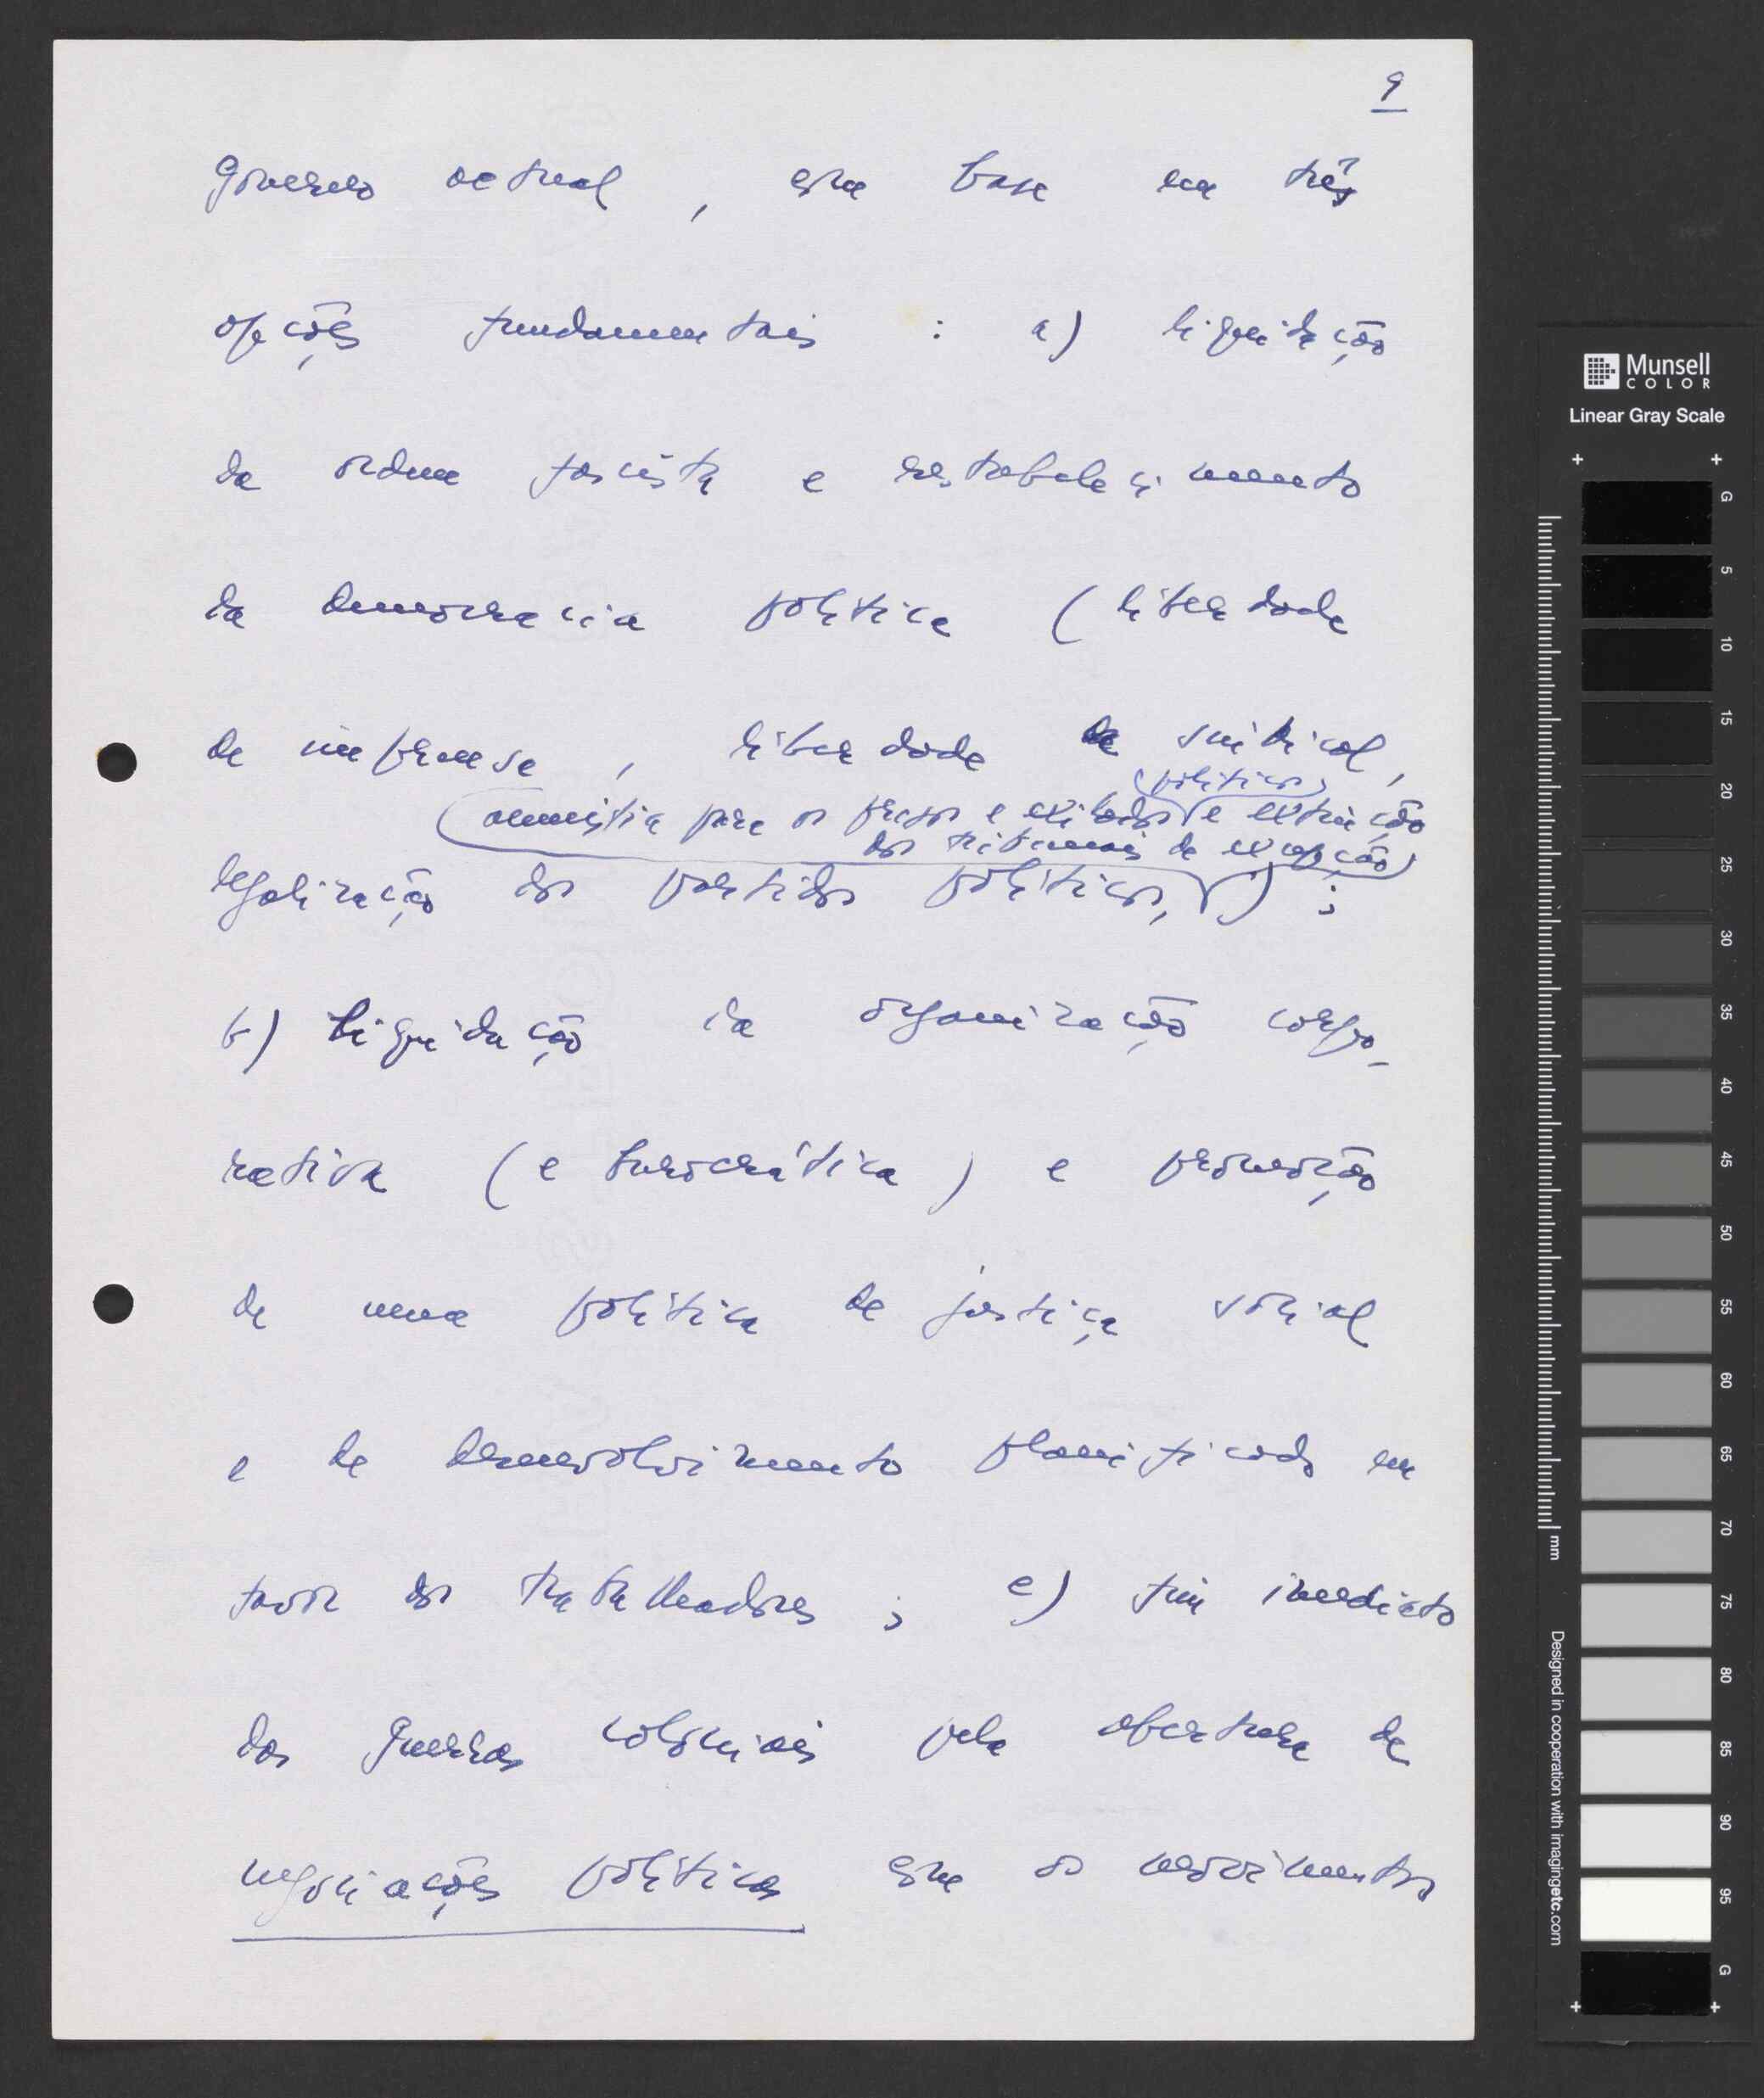 9
governo actual, com base em três
opções fundamentais : a) liquidação
da ordem fascista e restabelecimento
da democracia política (liberdade
de imprensa, liberdade sindical,
políticos
amnistia para os presos e exilados e extinção
dos tribunais de excepção
legalização dos partidos políticos, ) ;
b) liquidação da organização corpo-
rativa (e burocrática) e promoção
de uma política de justiça social
e de desenvolvimento planificado em
favor dos trabalhadores ; c) fim imediato
das guerras coloniais pela abertura de
negociações políticas com os movimentos
Munsell
COLOR
Linear Gray Scale
G
5
10
15
20
25
30
35
40
45
50
55
60
65
70
75
80
85
90
95
G
mm
Designed in cooperation with imagingetc.com